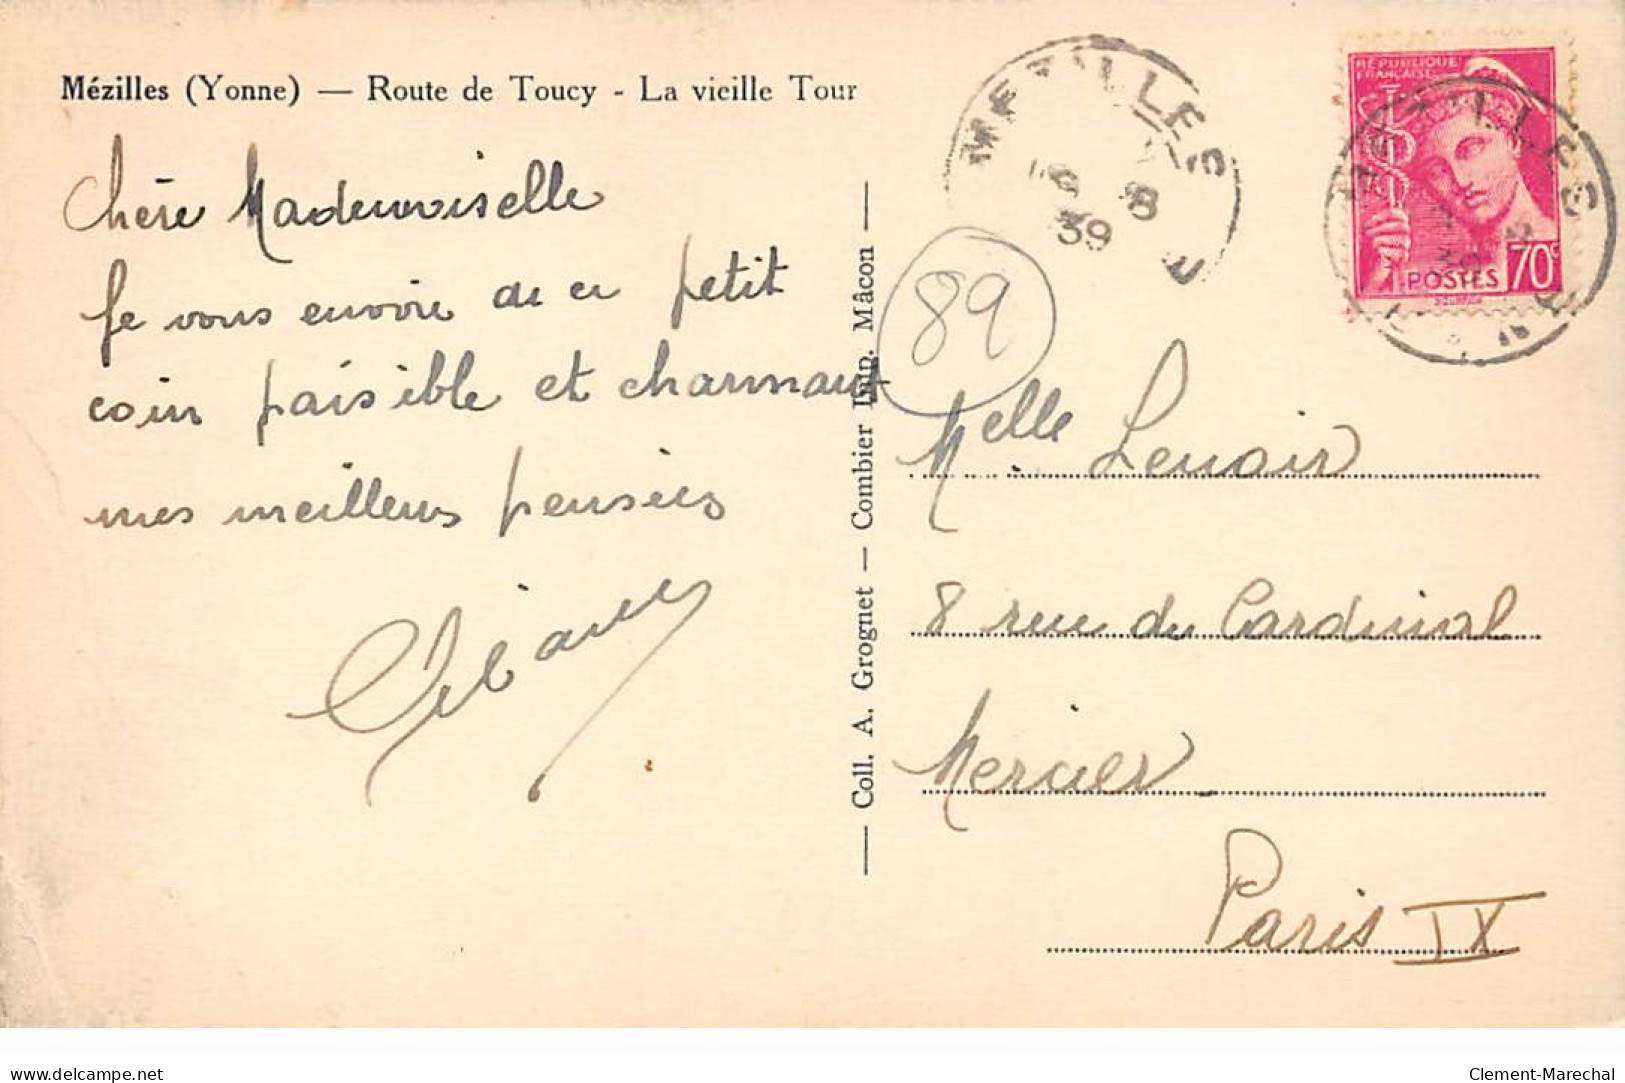 Mézilles (Yonne) — Route de Toucy - La vieille Tour
Chère Mademoiselle
Je vous envoie de ce petit
coin paisible et charmant
mes meilleurs pensées
— Coll. A. Grognet — Combier Imp. Mâcon —
MEZILLES
8
39
89
RÉPUBLIQUE
FRANÇAISE
POSTES
70c
Melle Lenoir
8 rue du Cardinal
Mercier
Paris IX
www.delcampe.net
Clement-Marechal